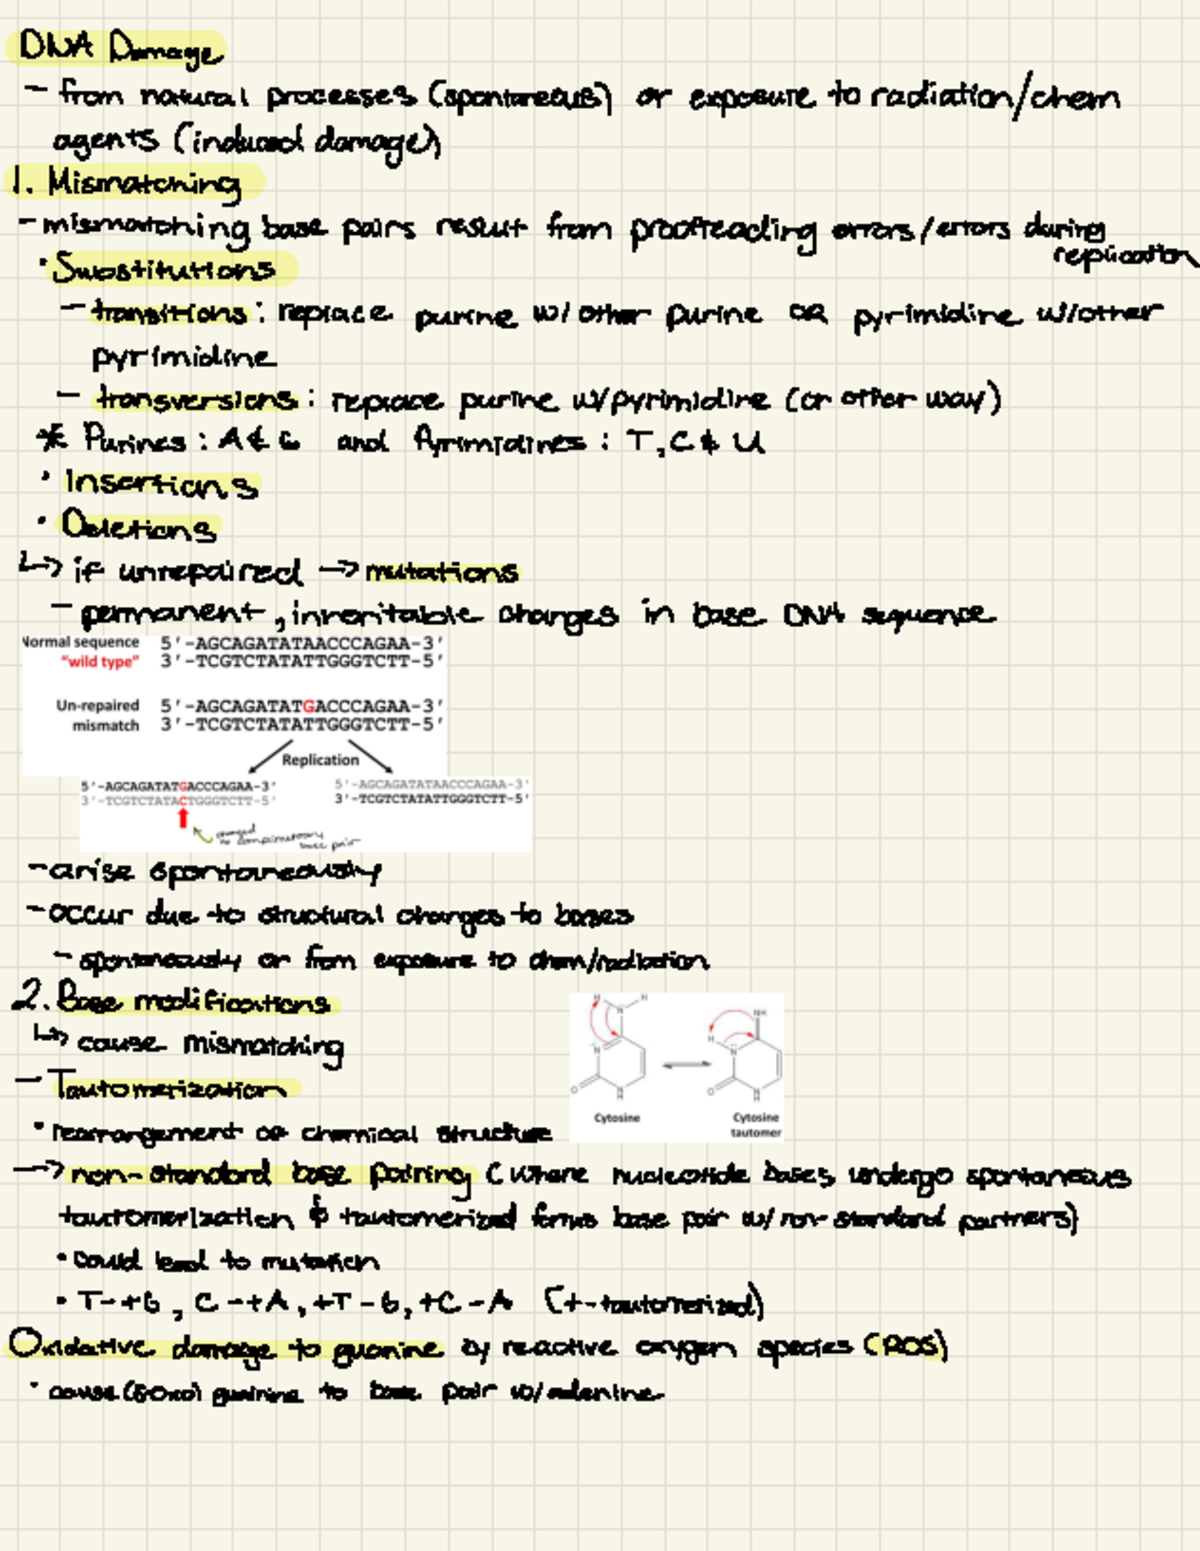 DNA Damage
- from natural processes (spontaneous) or exposure to radiation/chem
agents (induced damage)
1. Mismatching
- mismatching base pairs result from proofreading errors/errors during
replication
• Substitutions
- transitions: replace purine w/ other purine OR pyrimidine w/other
pyrimidine
- transversions: replace purine w/pyrimidine (or other way)
* Purines: A & G and Pyrimidines: T, C & U
• Insertions
• Deletions
↳ if unrepaired → mutations
- permanent, inheritable changes in base DNA sequence
Normal sequence 5'-AGCAGATATAACCCAGAA-3'
"wild type" 3'-TCGTCTATATTGGGTCTT-5'
Un-repaired 5'-AGCAGATATGACCCAGAA-3'
mismatch 3'-TCGTCTATATTGGGTCTT-5'
Replication
5'-AGCAGATATGACCCAGAA-3' 5'-AGCAGATATAACCCAGAA-3'
3'-TCGTCTATACTGGGTCTT-5' 3'-TCGTCTATATTGGGTCTT-5'
changed
to complimentary
base pair
- arise spontaneously
- occur due to structural changes to bases
- spontaneously or from exposure to chem/radiation
2. Base modifications
↳ cause mismatching
- Tautomerization
• rearrangement of chemical structure
Cytosine
Cytosine
tautomer
→ non-standard base pairing (where nucleotide bases undergo spontaneous
tautomerization & tautomerized forms base pair w/ non-standard partners)
• could lead to mutation
• T-tG, C-tA, tT-G, tC-A (t-tautomerized)
Oxidative damage to guanine by reactive oxygen species (ROS)
• cause (8oxo) guanine to base pair w/adenine